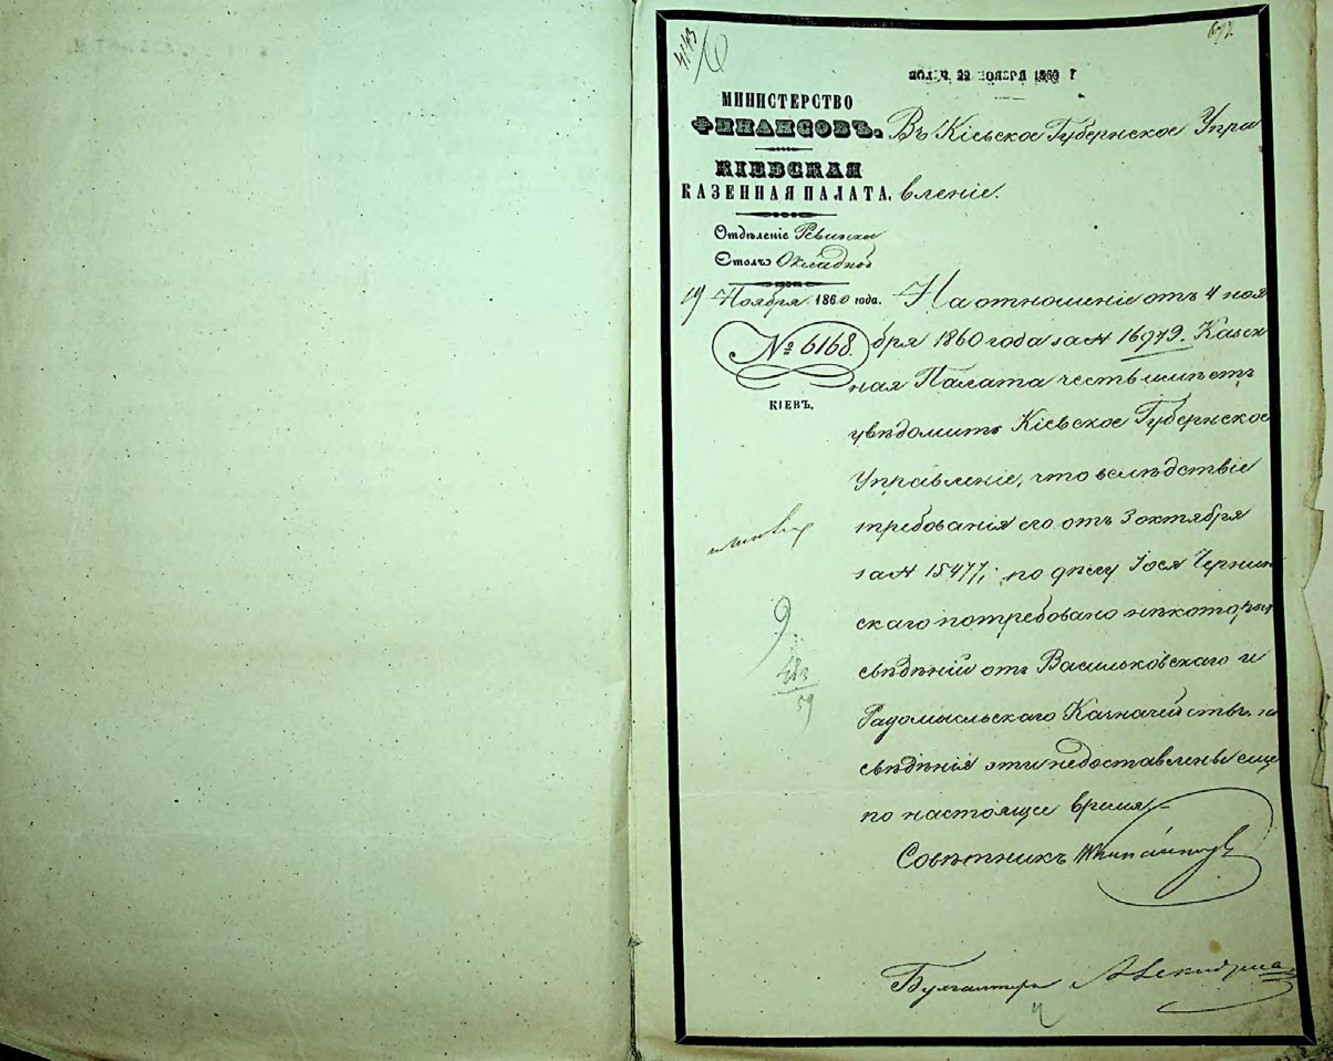 4143
673.
ПОЛУЧ. 22 НОЯБРЯ 1860 Г
МИНИСТЕРСТВО
ФИНАНСОВЪ.
КІЕВСКАЯ
КАЗЕННАЯ ПАЛАТА.
Отдѣленіе Ревизское
Столъ Окладной
19 Ноября 1860 года.
№ 6168.
КІЕВЪ.
Въ Кіевское Губернское Упра
вленіе.
На отношеніе отъ 4 ноя
бря 1860 года за № 16979. Казен
ная Палата честь имѣетъ
увѣдомить Кіевское Губернское
Управленіе, что вслѣдствіе
требованія его отъ 3 октября
за № 15477, по дѣлу Іося Чернин
скаго потребовано нѣкоторыя
свѣдѣній отъ Васильковскаго и
Радомысльскаго Казначействъ, но
свѣдѣнія эти недоставлены еще
по настоящее время
Совѣтникъ
Бухгалтеръ
9
483
59